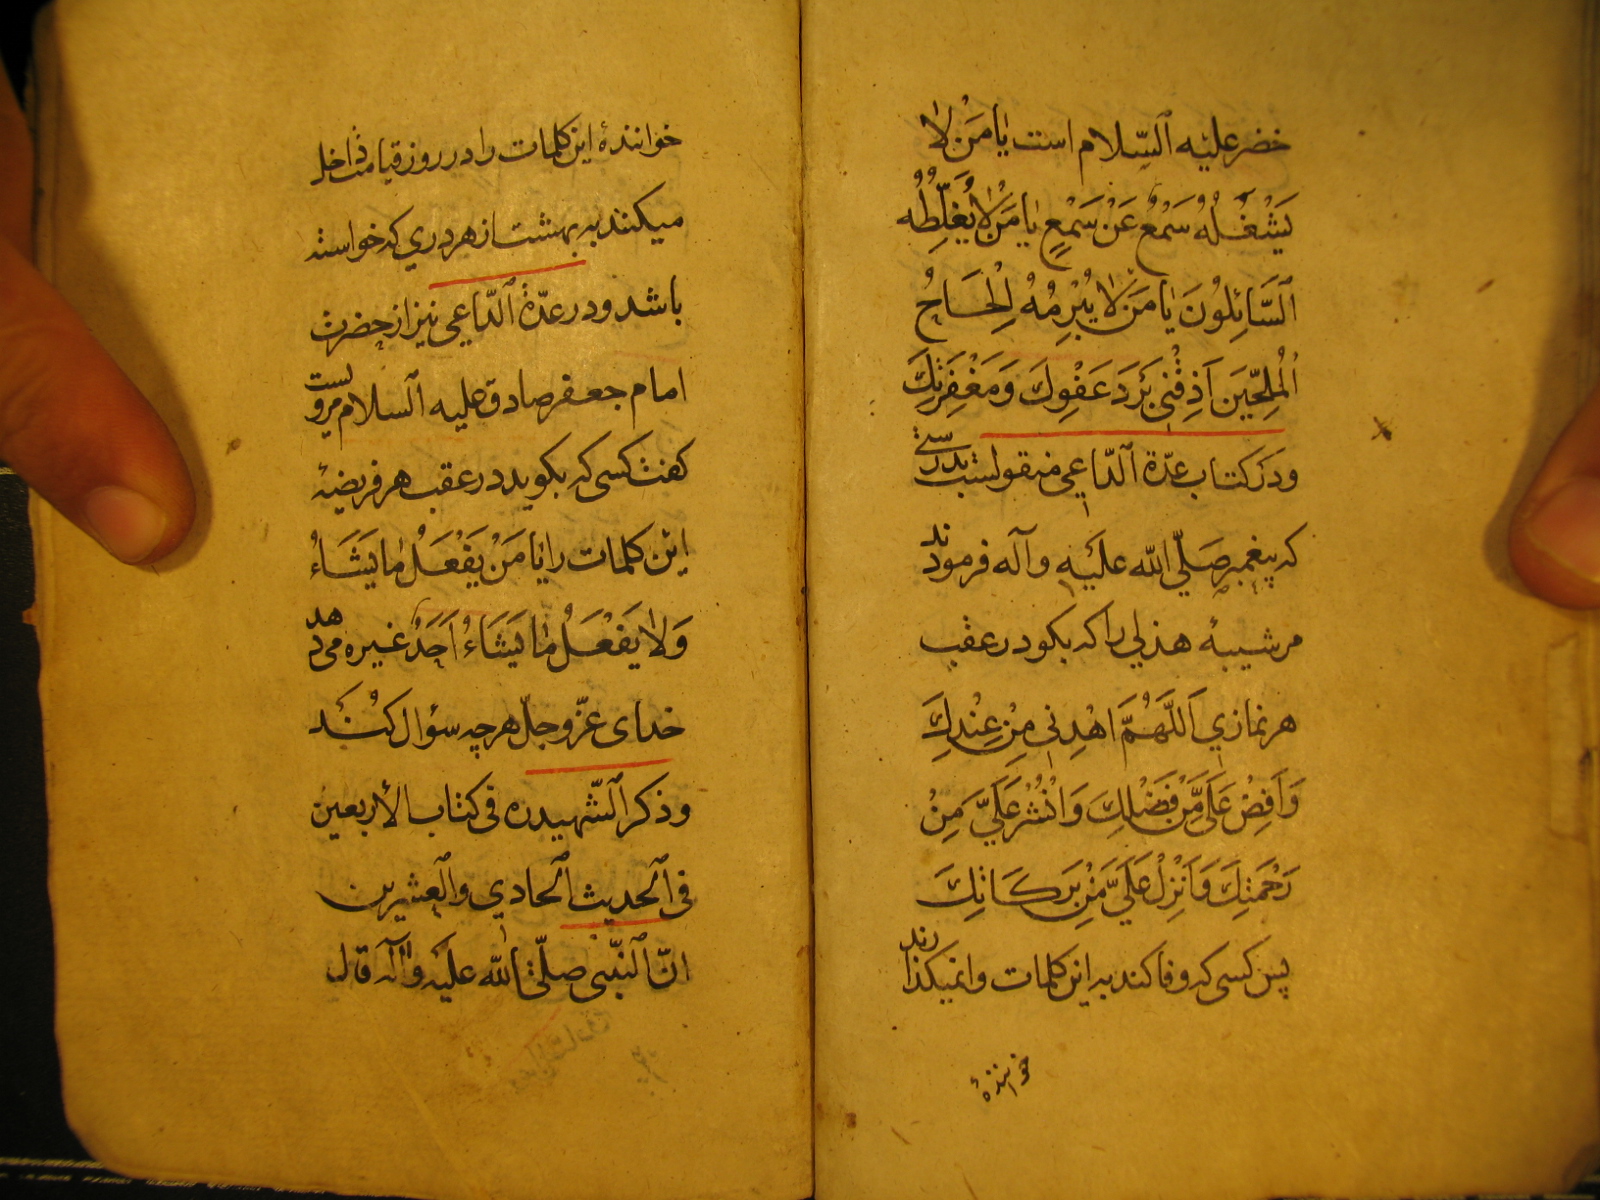 خضر علیه السّلام است یا مَنْ لا
یَشْغَلُهُ سَمْعٌ عَنْ سَمْعٍ یا مَنْ لا یُغَلِّطُهُ
السَّائِلُونَ یا مَنْ لا یُبْرِمُهُ اِلْحَاحُ
الْمُلِحّینَ اَذِقْنی بَرْدَ عَفْوِكَ وَمَغْفِرَتِكَ
ودر کتاب عدّة الدّاعی منقولست بدرستی
که پیغمبر صَلّی الله عَلَیْهِ وآله فرمودند
مر شیبهٔ هذلی را که بکو در عقب
هر نمازی اَللّهُمَّ اهْدِنی مِنْ عِنْدِكَ
وَاَفِضْ عَلَیَّ مِنْ فَضْلِكَ وَانْشُرْ عَلَیَّ مِنْ
رَحْمَتِكَ وَاَنْزِلْ عَلَیَّ مِنْ بَرَکَاتِكَ
پس کسی که وفا کند به این کلمات وانمیکذارند
خوانندهٔ
خوانندهٔ این کلمات را در روز قیامت داخل
میکنند به بهشت از هر دری که خواسته
باشد ودر عدّة الدّاعی نیز از حضرت
امام جعفر صادق علیه السلام مرویست
کفت کسی که بکوید در عقب هر فریضهٔ
این کلمات را یا مَنْ یَفْعَلُ ما یَشَاءُ
وَلا یَفْعَلُ ما یَشَاءُ اَحَدٌ غیره می دهد
خدای عزّوجلّ هرچه سؤال کُنَد
وذکر الشّهید ره فی کتاب الأربعین
فی الحدیث الحادی والعشرین
انّ النّبی صلّی الله علیه وآله قال